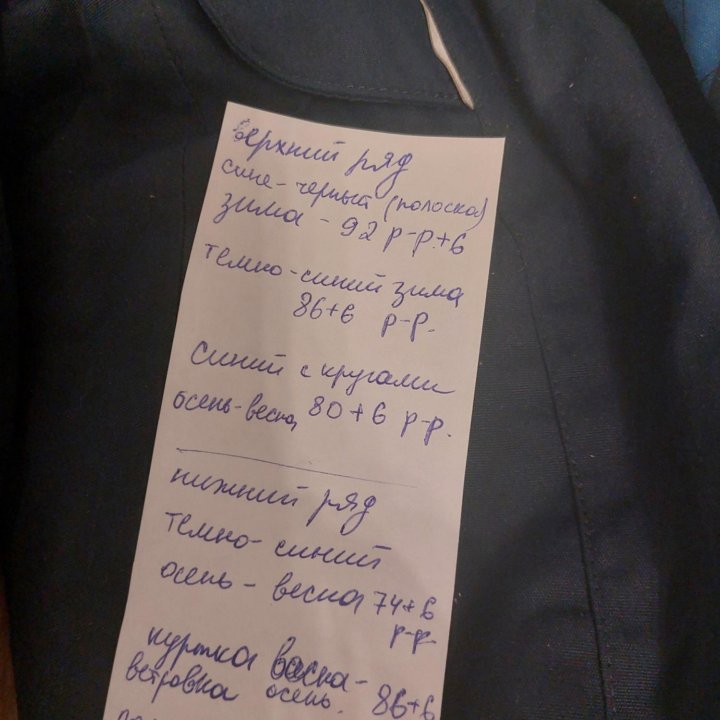 верхний ряд
сине-черный (полоска)
зима - 92 р-р.+6
темно-синий зима
86+6 р-р.
синий с кругами
осень-весна, 80+6 р-р.
нижний ряд
темно-синий
осень-весна 74+6
р-р
куртка весна-
ветровка осень. 86+6